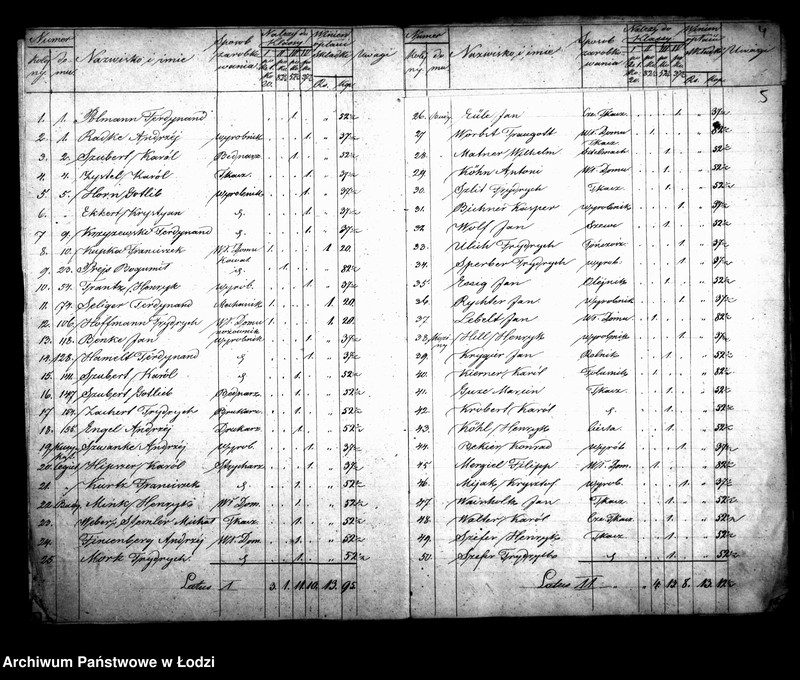 4
5
Numer
Nazwisko i imie
Sposob zarobkowania
Należy do klassy
Winien opłacić składki
Uwagi
Rs. Kop.
1. 1. Polmann Ferdynand 1 52½
2. 1. Radke Andrzéj wyrobnik 1. 37½
3. 2. Szubert Karól Bednarz 1. 52½
4. 4. Zystel Karól Tkacz 1. 37½
5. 5. Horn Gotlib wyrobnik 1. 37½
6. Ekkert Krystyan 1. 37½
7. 9. Krzyzewski Ferdynand 1. 37½
8. 10. Kupka Franciszek Wł. Domu 1. 1 20.
9. 23. Prejs Bogumił Kowal 1 82½
10. 54. Frantz Henryk wyrob. 1. 37½
11. 74. Seliger Ferdynand Mechanik 1. 1 20.
12. 106. Hoffmann Frydrych Wł. Domu 1. 1 20.
13. 118. Benke Jan wyrobnik 1. 37½
14. 128. Hameld Ferdynand 1. 37½
15. 141. Szubert Karól 1. 52½
16. 147. Szubert Gotlieb Bednarz 1. 52½
17. 164. Zachert Frydrych 1. 52½
18. 136. Engel Andrzéj Drukarz 1. 52½
19. Szwanke Andrzéj wyrob. 1. 37½
20. Hipszer Karól Strycharz 1. 37½
21. Kurtz Franciszek 1. 52½
22. Mink Henryk Wł. Dom. 1. 52½
23. Weber, Stemler Michał Tkacz. 1. 52½
24. Fincenberg Andrzéj Wł. Dom 1. 52½
25. Mark Frydrych 1. 52½
Latus 1 3. 1. 11. 10. 13. 95.
Numer
Nazwisko i imie
Sposob zarobkowania
Należy do klassy
Winien opłacić składki
Uwagi
Rs. Kop.
26. Eule Jan Cze. Tkacz. 1. 37½
27. Worbit Traugott Wł. Domu 1. 82½
28. Matner Wilhelm Tkacz Sztelmach 1. 52½
29. Köhn Antoni Wł. Domu 1. 52½
30. Szlit Frydrych Tkacz. 1. 52½
31. Bichner Kasper Wyrobnik 1. 37½
32. Wolf Jan Szewc 1. 52½
33. Ulich Frydrych Pończosz. 1. 37½
34. Sperber Frydrych wyrob. 1. 37½
35. Essig Jan Olejnik 1. 52½
36. Rychter Jan Wyrobnik 1. 37½
37. Lebelt Jan Wł. Domu 1. 82½
38. Hill Henryk wyrobnik 1. 37½
39. Krygier Jan Rolnik 1. 52½
40. Kierner Karól 1. 82½
41. Guze Marcin Tkacz. 1. 52½
42. Krobert Karól 1. 52½
43. Köhl Henryk Cieśla. 1. 52½
44. Bekier Konrad wyrób. 1. 37½
45. Mergiel Filipp Wł. Dom. 1. 82½
46. Mijak Krysztof wyrob. 1. 37½
47. Wairholtz Jan Tkacz. 1. 52½
48. Walter Karól Cze Tkacz. 1. 52½
49. Szefer Henryk Tkacz 1. 52½
50. Szefer Frydrych 1. 52½
Latus 11 4. 13. 8. 13. 12½
Archiwum Państwowe w Łodzi